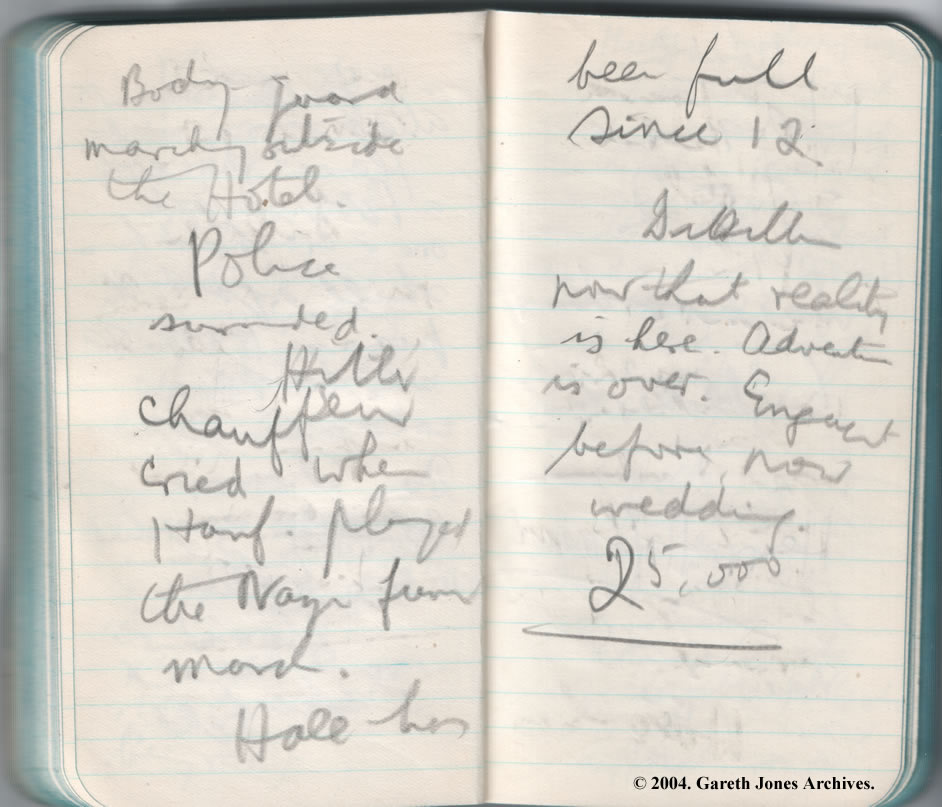 Body guard
marching outside
the Hotel.
Police
surrounded.
Hitler
chauffeur
cried when
Hanf. played
the Nazi funeral
march.
Hall has
been full
since 12.
now that reality
is here. Adventure
is over. Engagement
before, now
wedding.
25,000
© 2004. Gareth Jones Archives.